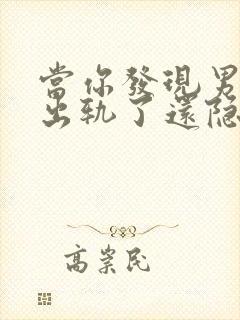 當你發現男
出軌了還隐
高崇民